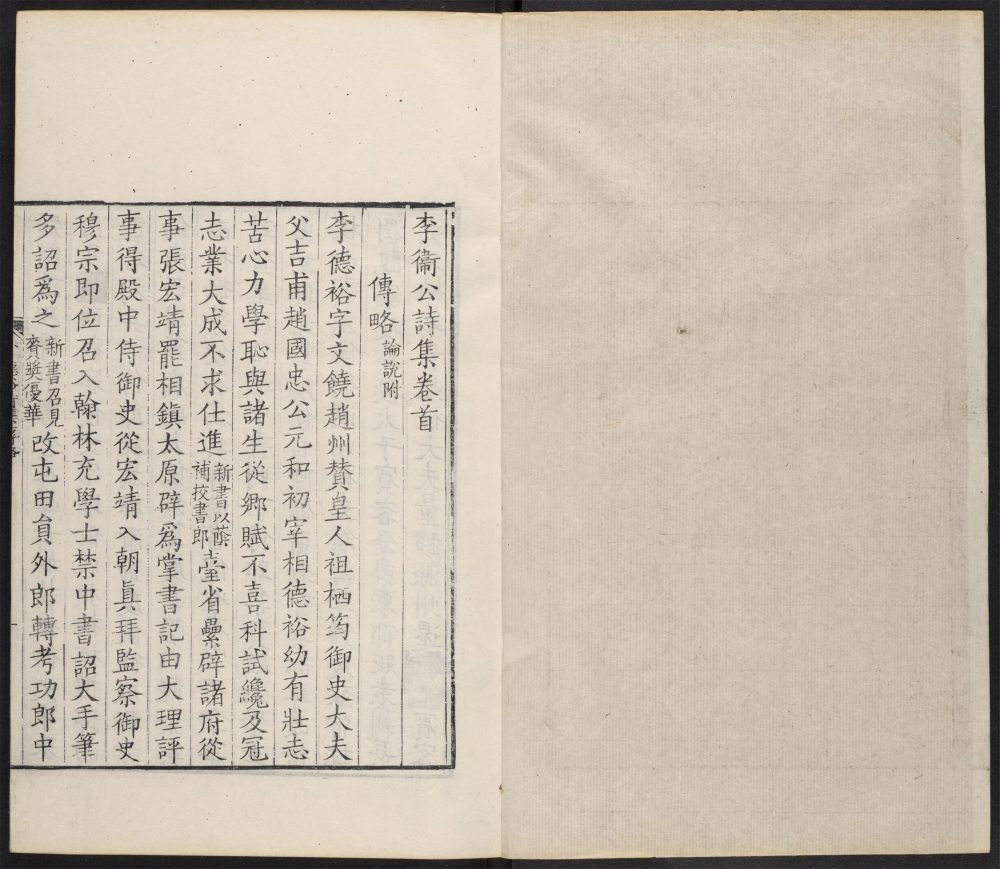 李衞公詩集卷首
傳略論說附
李德裕字文饒趙州贊皇人祖栖筠御史大夫
父吉甫趙國忠公元和初宰相德裕幼有壯志
苦心力學恥與諸生從鄉賦不喜科試纔及冠
志業大成不求仕進新書以蔭補挍書郎臺省纍辟諸府從
事張宏靖罷相鎮太原辟爲掌書記由大理評
事得殿中侍御史從宏靖入朝眞拜監察御史
穆宗即位召入翰林充學士禁中書詔大手筆
多詔爲之新書召見賚奬優華改屯田員外郎轉考功郎中